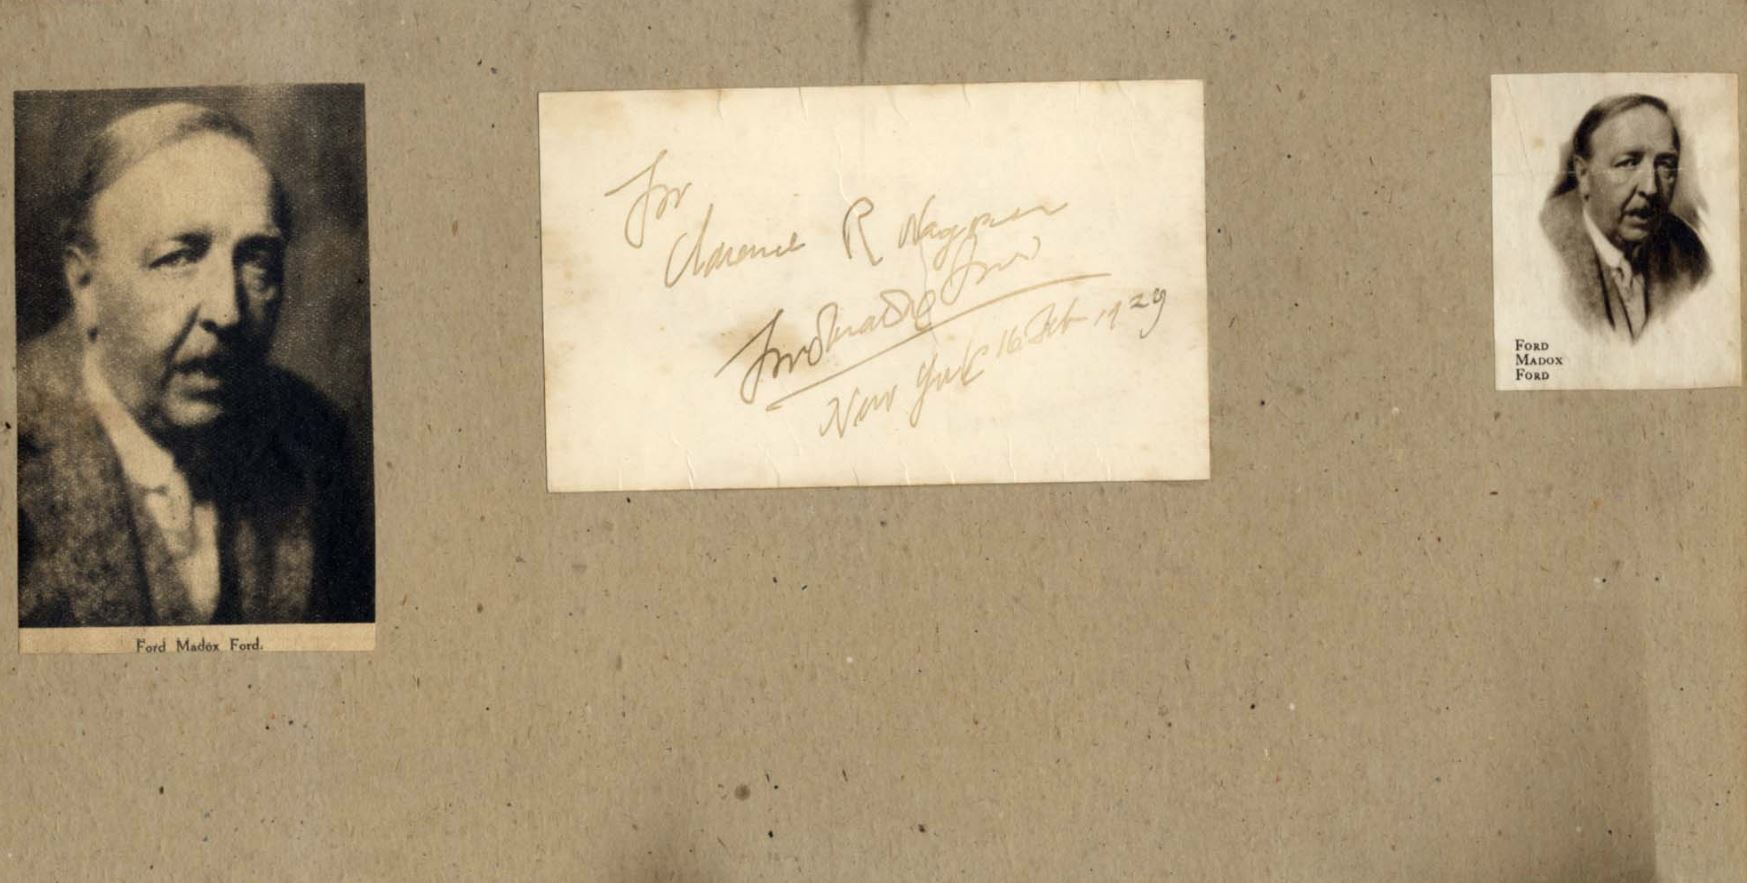 Ford Madox Ford.
For
Clarence R Wagner
Ford Madox Ford
New York 16 Feb 1929
FORD
MADOX
FORD